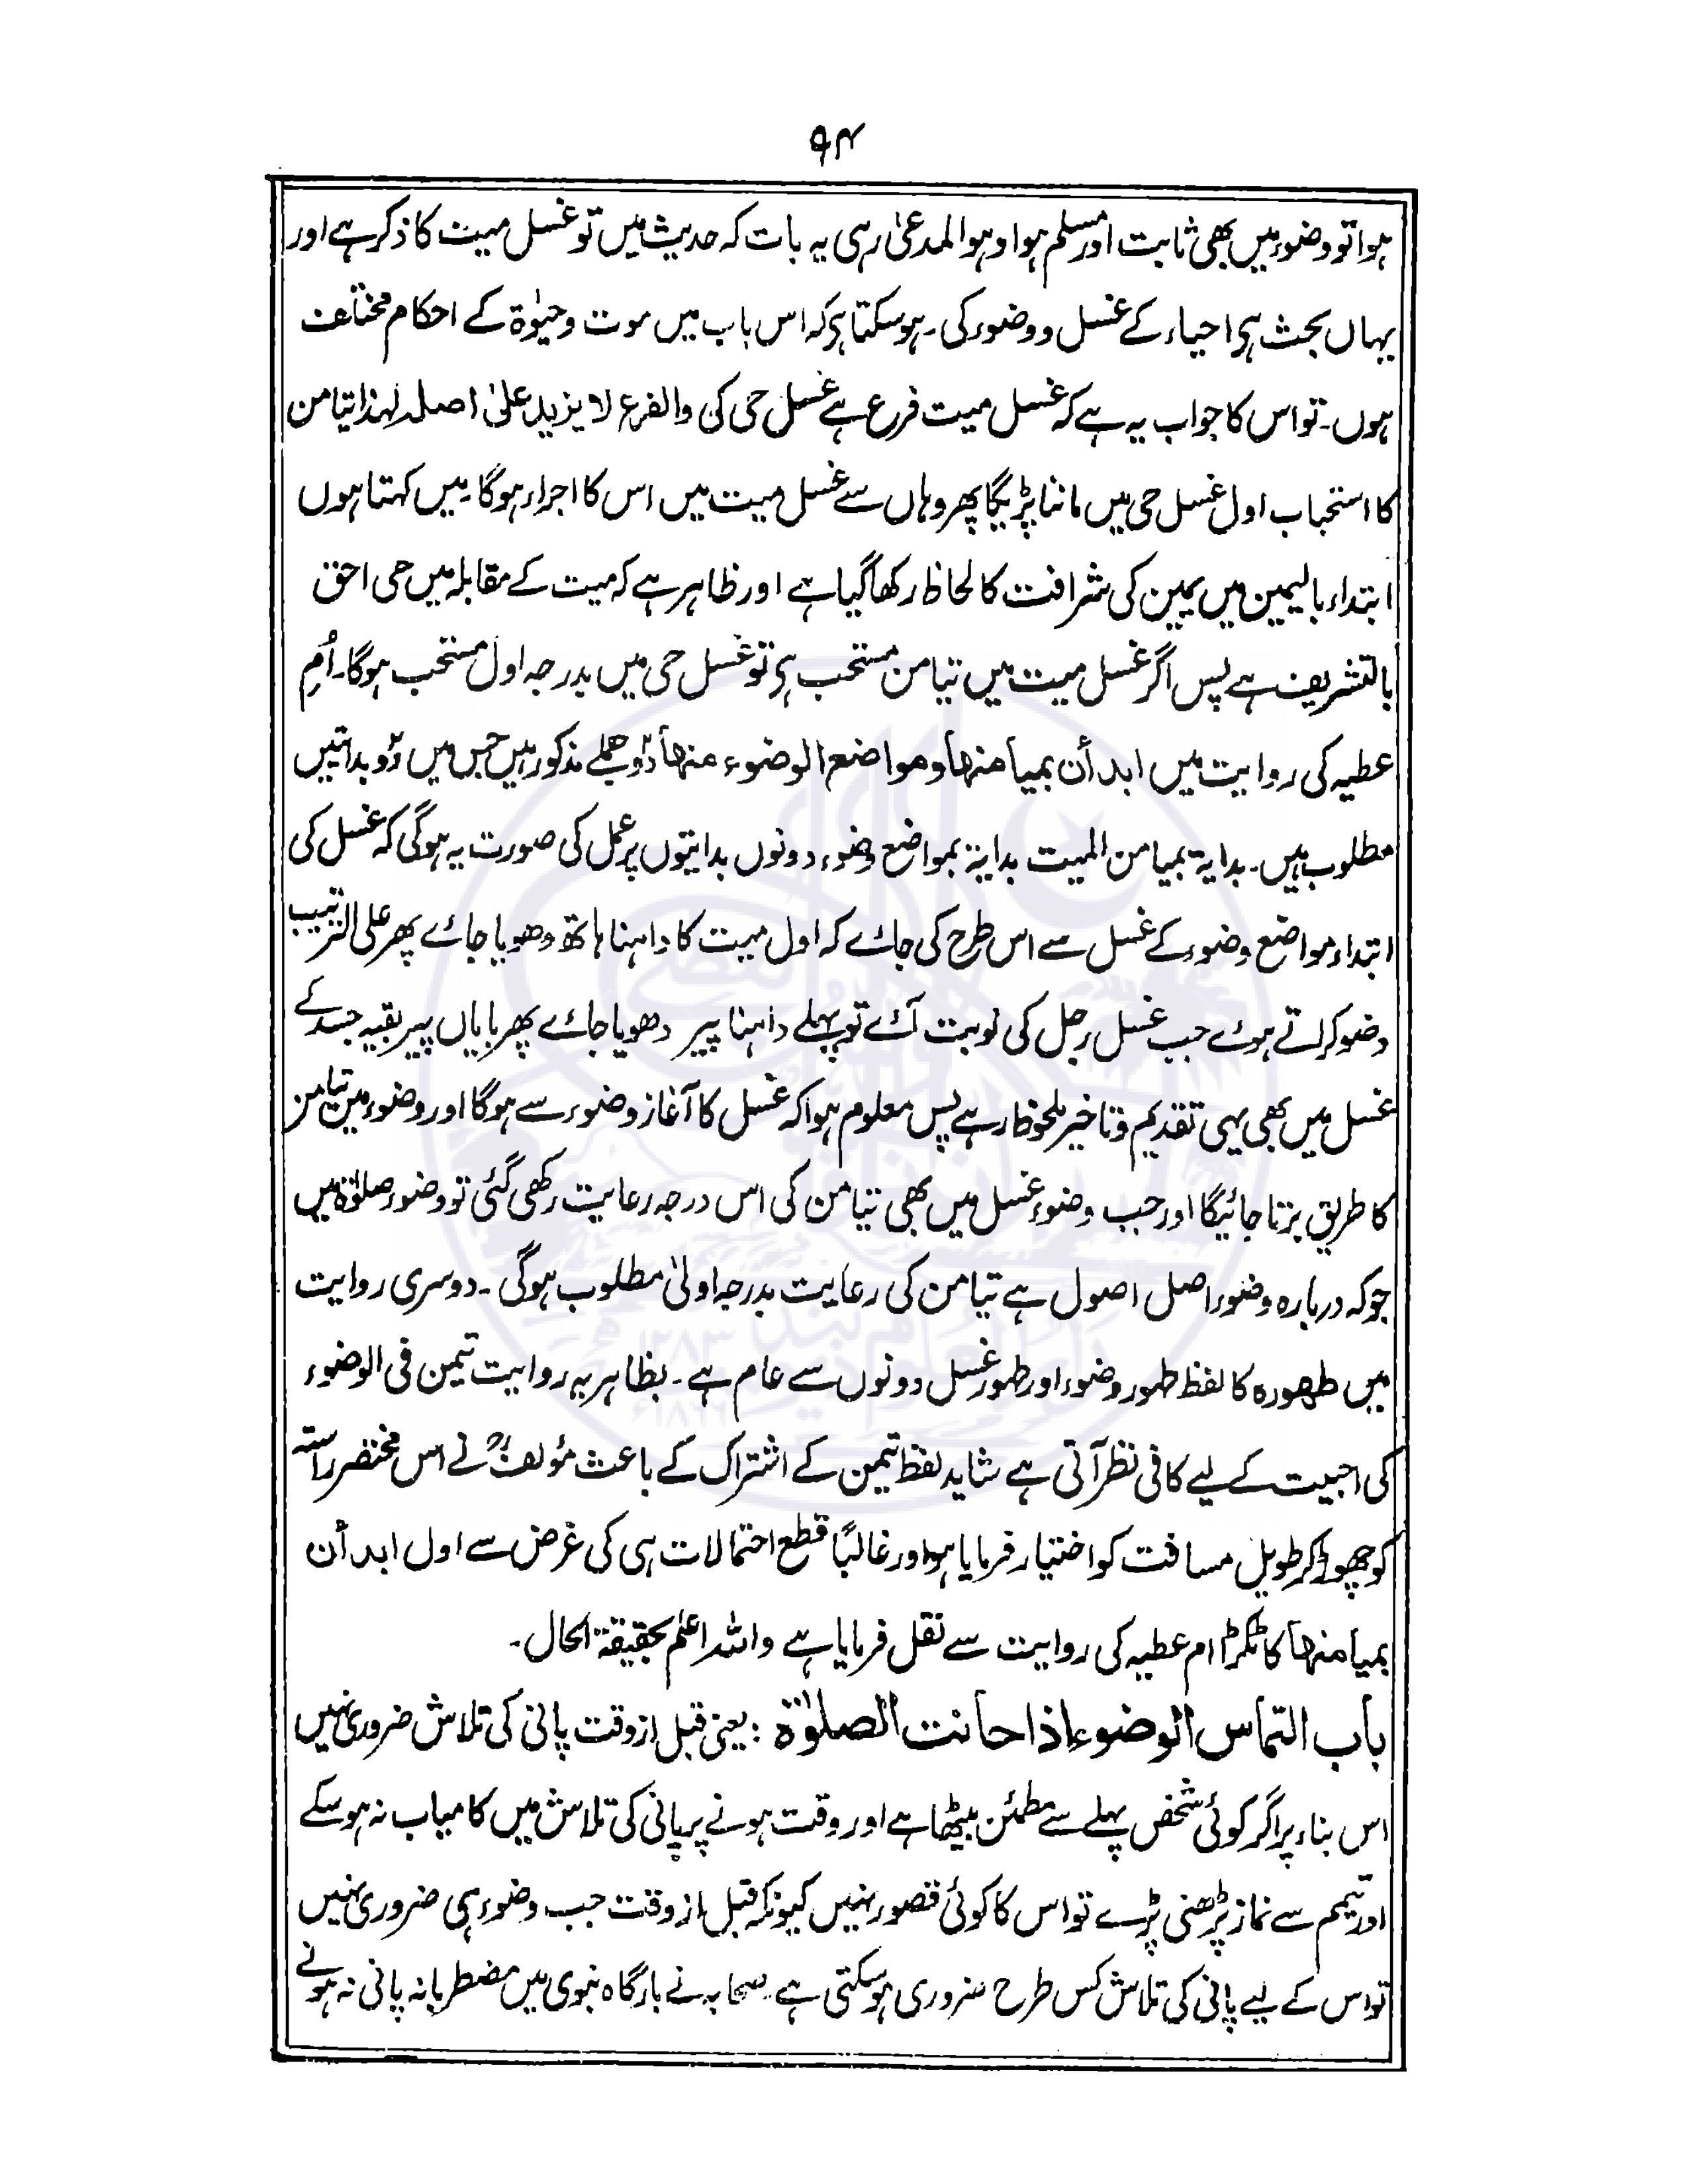 ۹۴
ہوا تو وضوء میں بھی ثابت اور مسلم ہوا وہو المدعیٰ رہی یہ بات کہ حدیث میں تو غسل میت کا ذکر ہے اور
یہاں بحث ہی احیاء کے غسل و وضوء کی۔ ہو سکتا ہی کہ اس باب میں موت و حیٰوۃ کے احکام مختلف
ہوں۔ تو اس کا جواب یہ ہے کہ غسل میت فرع ہے غسل حی کی والفرع لا یزید علیٰ اصلہ لہٰذا تیامن
کا استحباب اول غسل حی میں ماننا پڑیگا پھر وہاں سے غسل میت میں اس کا اجراء ہوگا۔ میں کہتا ہوں
ابتداء بالیمین میں یمین کی شرافت کا لحاظ رکھا گیا ہے اور ظاہر ہے کہ میت کے مقابلہ میں حی احق
بالتشریف ہے پس اگر غسل میت میں تیامن مستحب ہی تو غسل حی میں بدرجہ اول مستحب ہوگا۔ اُمِ
عطیہ کی روایت میں ابدأن بمیامنھا ومواضع الوضوء منھا دو جملے مذکور ہیں جس میں دو بدایتیں
مطلوب ہیں۔ بدایۃ بمیامن المیت بدایۃ بمواضع وضوء دونوں بدایتوں پر عمل کی صورت یہ ہوگی کہ غسل کی
ابتداء مواضع وضوء کے غسل سے اس طرح کی جائے کہ اول میت کا داہنا ہاتھ دھویا جائے پھر علی الترتیب
وضو کراتے ہوئے جب غسل رجل کی نوبت آئے تو پہلے داہنا پیر دھویا جائے پھر بایاں پیر بقیہ جسد کے
غسل میں بھی یہی تقدیم و تاخیر ملحوظ رہے پس معلوم ہوا کہ غسل کا آغاز وضوء سے ہوگا اور وضوء میں تیامن
کا طریق برتا جائیگا اور جب وضوء غسل میں بھی تیامن کی اس درجہ رعایت رکھی گئی تو وضوء صلوٰۃ میں
جو کہ دربارہ وضوء اصل اصول ہے تیامن کی رعایت بدرجہ اولیٰ مطلوب ہوگی۔ دوسری روایت
میں طہورہ کا لفظ طہور وضوء اور طہور غسل دونوں سے عام ہے۔ بظاہر یہ روایت تیمن فی الوضوء
کی احبیت کے لیے کافی نظر آتی ہے شاید لفظ تیمن کے اشتراک کے باعث مؤلفؒ نے اس مختصر راستہ
کو چھوڑ کر طویل مسافت کو اختیار فرمایا ہو اور غالبًا قطع احتمالات ہی کی غرض سے اول ابدأن
بمیامنھا کا ٹکڑا ام عطیہ کی روایت سے نقل فرمایا ہے واللہ اعلم بحقیقۃ الحال۔
باب التماس الوضوء اذا حانت الصلوٰۃ : یعنی قبل از وقت پانی کی تلاش ضروری نہیں
اس بناء پر اگر کوئی شخص پہلے سے مطمئن بیٹھا ہے اور وقت ہونے پر پانی کی تلاش میں کامیاب نہ ہو سکے
اور تیمم سے نماز پڑھنی پڑے تو اس کا کوئی قصور نہیں کیونکہ قبل از وقت جب وضوء ہی ضروری نہیں
تو اس کے لیے پانی کی تلاش کس طرح ضروری ہو سکتی ہے۔ صحابہ نے بارگاہ نبوی میں مضطربانہ پانی نہ ہونے